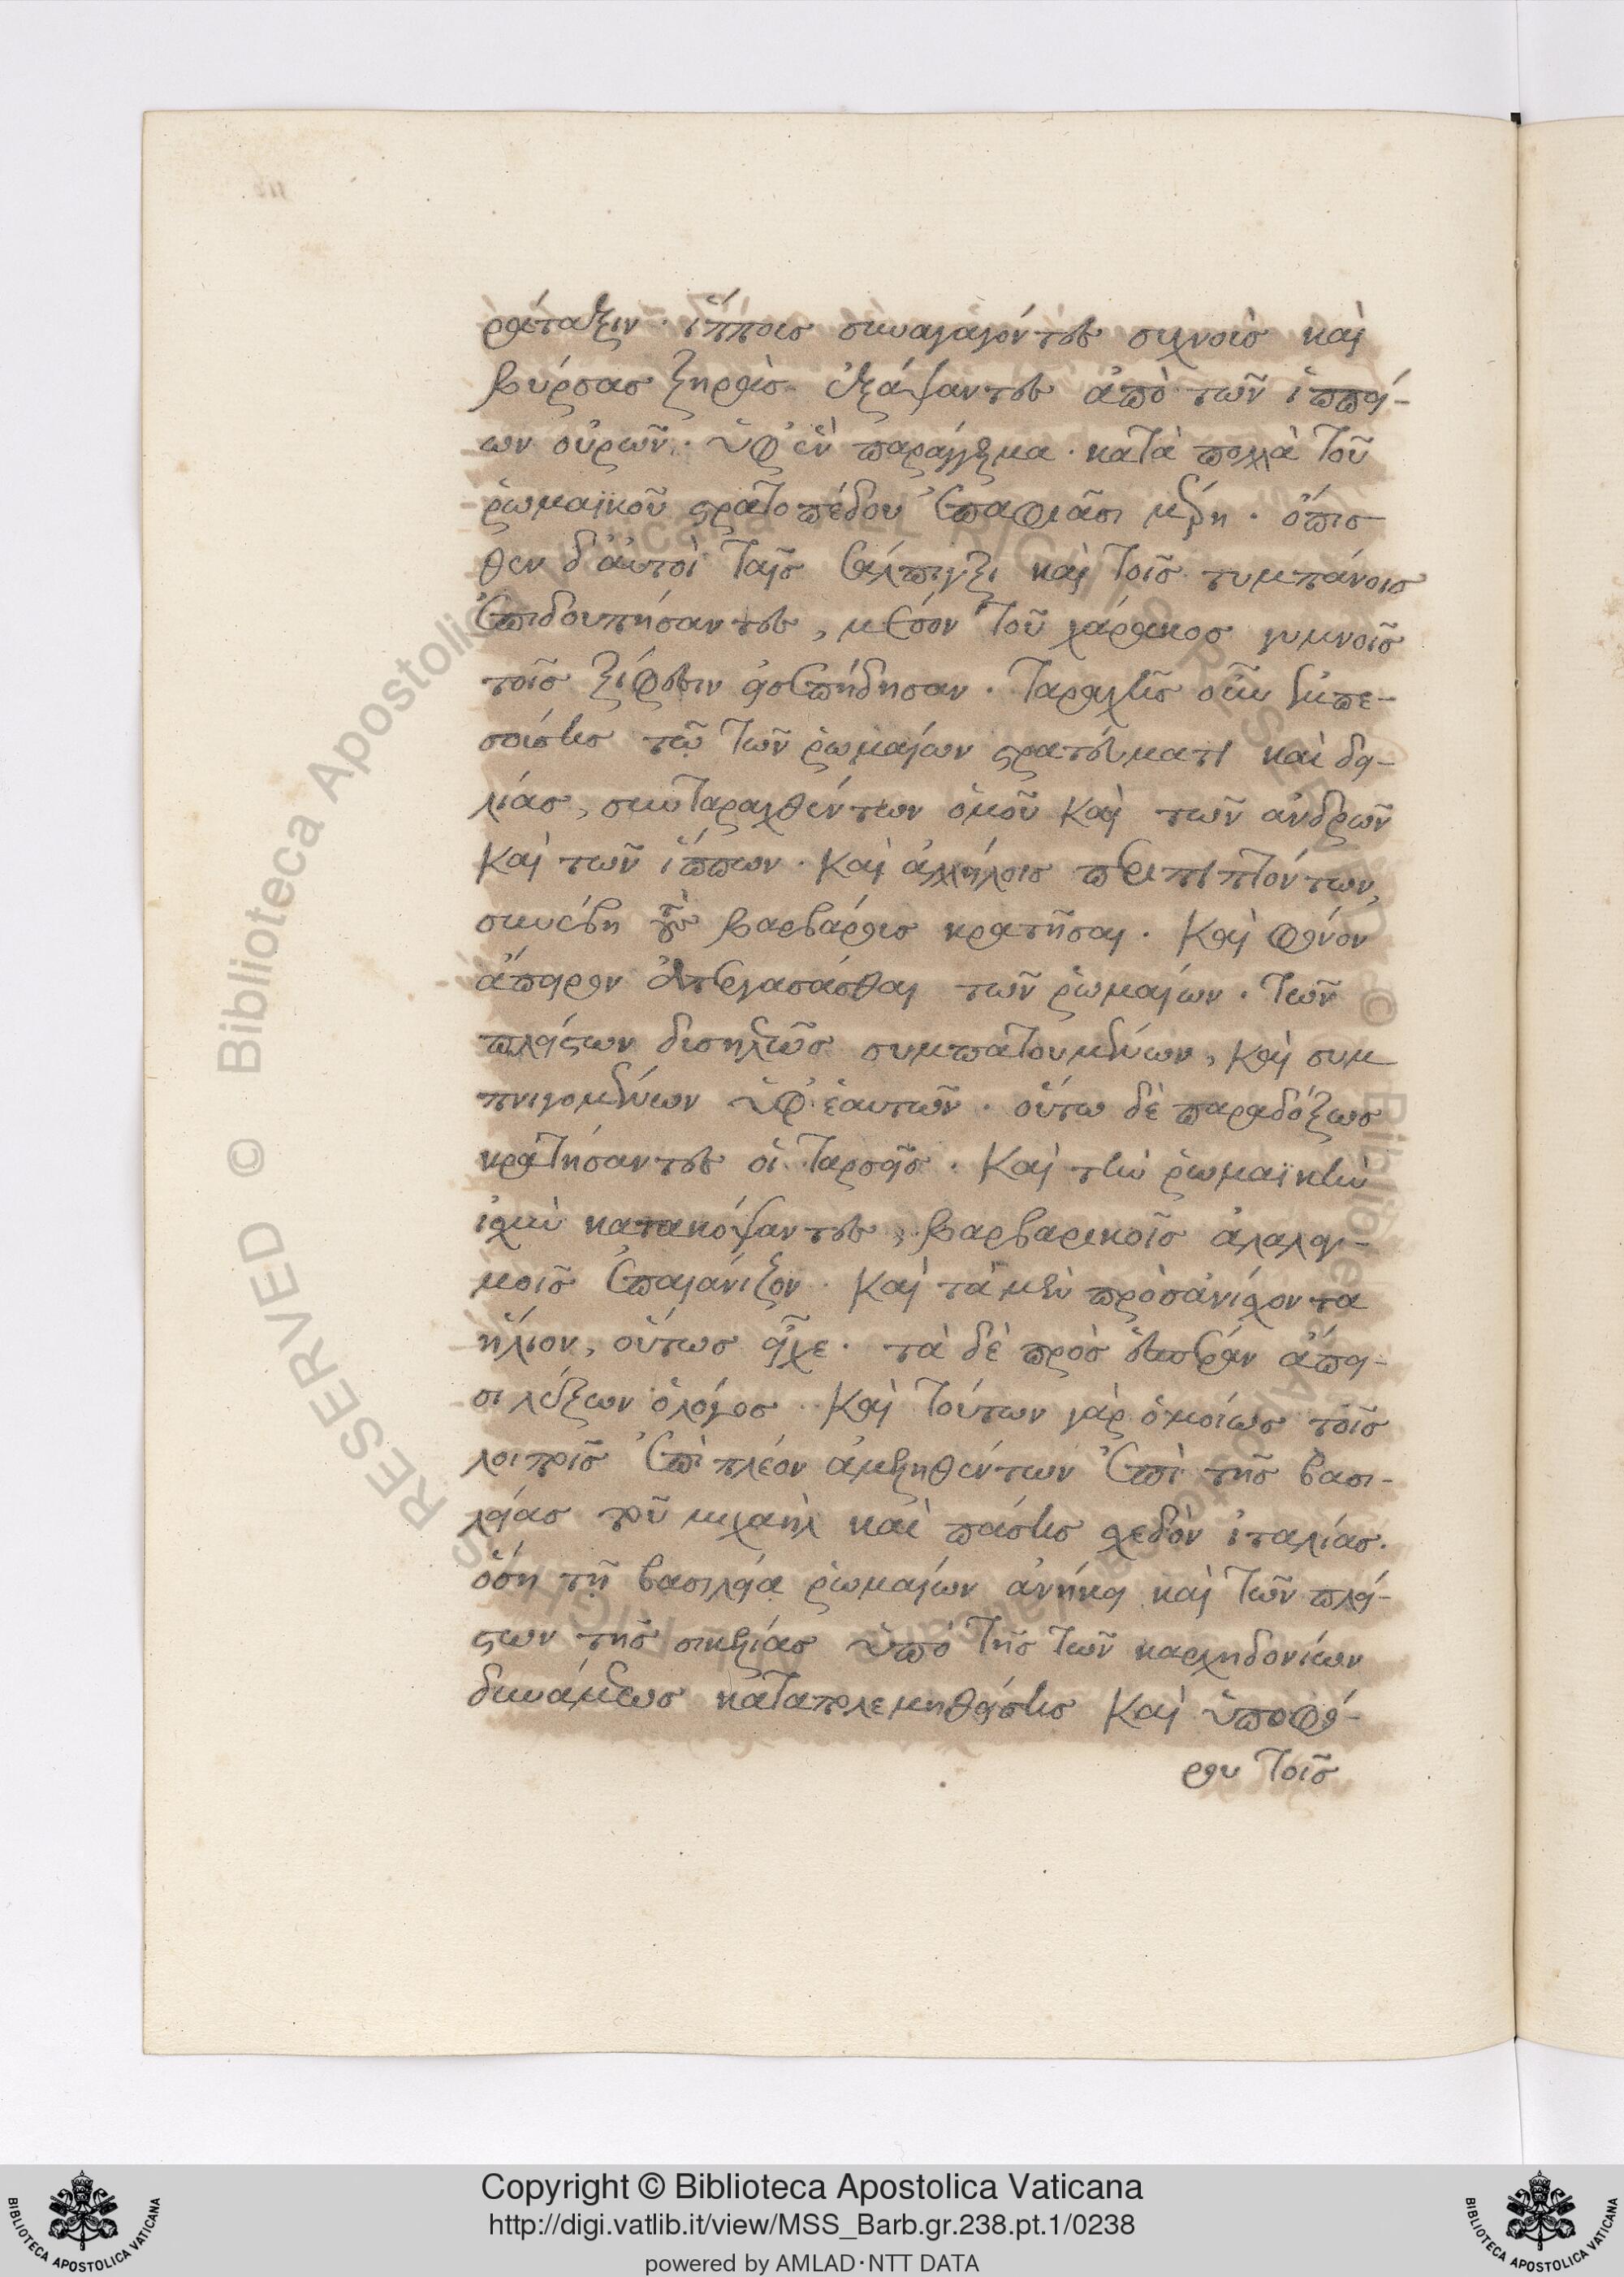 ράταξιν· ἵπποις συναγαγόντες συχνοὺς καὶ
βύρσας ξηρὰς ἐξάψαντες ἀπὸ τῶν ἱππεί-
ων οὐρῶν· ὑφ' ἓν παράγγελμα· κατὰ πολλὰ τοῦ
ῥωμαϊκοῦ στρατοπέδου ἐπαφιᾶσι μέρη· ὄπισ
θεν δ' αὐτοὶ ταῖς σάλπιγξι καὶ τοῖς τυμπάνοις
ἐπιδουπήσαντες, μέσον τοῦ χάρακος γυμνοῖς
τοῖς ξίφεσιν εἰσεπήδησαν. ταραχῆς οὖν ἐμπε-
σούσης τῷ τῶν ῥωμαίων στρατεύματι καὶ δει-
λίας, συνταραχθέντων ὁμοῦ καὶ τῶν ἀνδρῶν
καὶ τῶν ἵππων· καὶ ἀλλήλοις περιπιπτόντων,
συνέβη τοὺς βαρβάρους κρατῆσαι. καὶ φόνον
ἄπειρον ἀπεργάσασθαι τῶν ῥωμαίων. τῶν
πλείστων δυσηλεῶς συμπατουμένων, καὶ συμ
πνιγομένων ὑφ' ἑαυτῶν. οὕτω δὲ παραδόξως
κρατήσαντες οἱ ταρσεῖς. καὶ τὴν ῥωμαϊκὴν
ἰσχὺν κατακόψαντες, βαρβαρικοῖς ἀλαλαγ-
μοῖς ἐπαιάνιζον. καὶ τὰ μὲν πρὸς ἀνίσχοντα
ἥλιον, οὕτως εἶχε. τὰ δὲ πρὸς ἑσπέραν ἄπει-
σι λέξων ὁ λόγος. καὶ τούτων γὰρ ὁμοίως τοῖς
λοιποῖς ἐπὶ πλέον ἀμεληθέντων ἐπὶ τῆς βασι-
λείας τοῦ μιχαὴλ καὶ πάσης σχεδὸν ἰταλίας.
ὅση τῇ βασιλείᾳ ῥωμαίων ἀνήκει καὶ τῶν πλεί-
στων τῆς σικελίας ὑπὸ τῆς τῶν καρχηδονίων
δυνάμεως καταπολεμηθείσης καὶ ὑποφό-
ρου τοῖς
Copyright © Biblioteca Apostolica Vaticana
http://digi.vatlib.it/view/MSS_Barb.gr.238.pt.1/0238
powered by AMLAD·NTT DATA